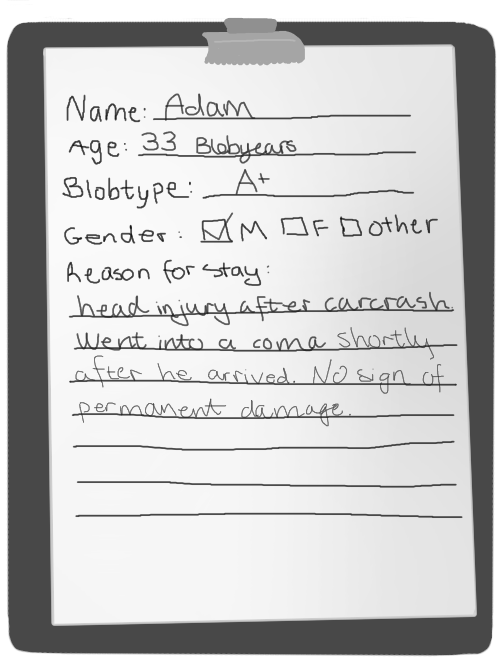 Name: Adam
Age: 33 Blobyears
Blobtype: A+
Gender: M F other
Reason for stay:
head injury after carcrash.
Went into a coma shortly
after he arrived. No sign of
permanent damage.